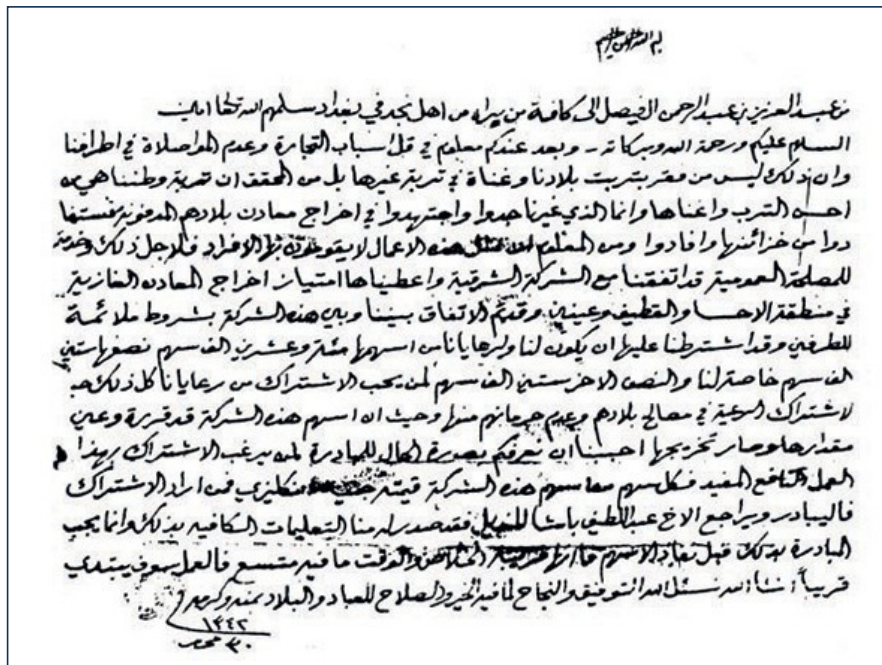 بسم الله الرحمن الرحيم
من عبد العزيز بن عبد الرحمن ال فيصل الى كافة من يراه من اهل نجد في بغداد سلمهم الله تعالى امين
السلام عليكم ورحمة الله وبركاته ـ وبعد عندكم معلوم في قل اسباب التجارة وعدم المواصلاة في اطرافنا
وان ذلك ليس من فقر بتربت بلادنا وغناة في تربة غيرها بل من المحقق ان تربة وطننا هي من
احسن الترب واغناها وانما الذي غيرنا جدوا واجتهدوا في اخراج معادن بلادهم المدفونة فستفا
دوا من خزائنها وافادوا ومن المعلوم ان مثل هذه الاعمال لا يقومون بها الافراد فلاجل ذلك وخدمة
للمصلحة العمومية قد اتفقنا مع الشركة الشرقية واعطيناها امتياز اخراج المعادن الغازية
في منطقة الاحسا والقطيف وعينين وقد تم الاتفاق بيننا وبين هذه الشركة بشروط ملائمة
للطرفين وقد اشترطنا عليها ان يكون لنا ولرعايانا من اسهمها مئة وعشرين الف سهم نصفها ستين
الف سهم خاصة لنا والنصف الاخر ستين الف سهم لمن يحب الاشتراك من رعايانا كل ذلك حب
لاشتراك الرعية في مصالح بلادهم وعدم حرمانهم منها وحيث ان اسهم هذه الشركة قد قررة وعين
مقدارها وصار تخريجها احببنا ان نعرفكم بصورة الحال للمبادرة لمن يرغب الاشتراك بهذا
العمل النافع المفيد فكل سهم من اسهم هذه الشركة قيمته انكليزي فمن اراد الاشتراك
فاليبادر ويراجع الاخ عبد اللطيف باشا المنديل فقد صدر له منا التعليمات الكافية بذلك وانما يجب
المبادرة بذلك قبل نفاد الاسهم فانها والوقت ما فيه متسع فالعمل سوف يبتدي
قريباً انشا الله نسئل الله التوفيق والنجاح لما فيه الخير والصلاح للعباد والبلاد بمنه وكرمه
١٣٤٢
٣٠ محرم